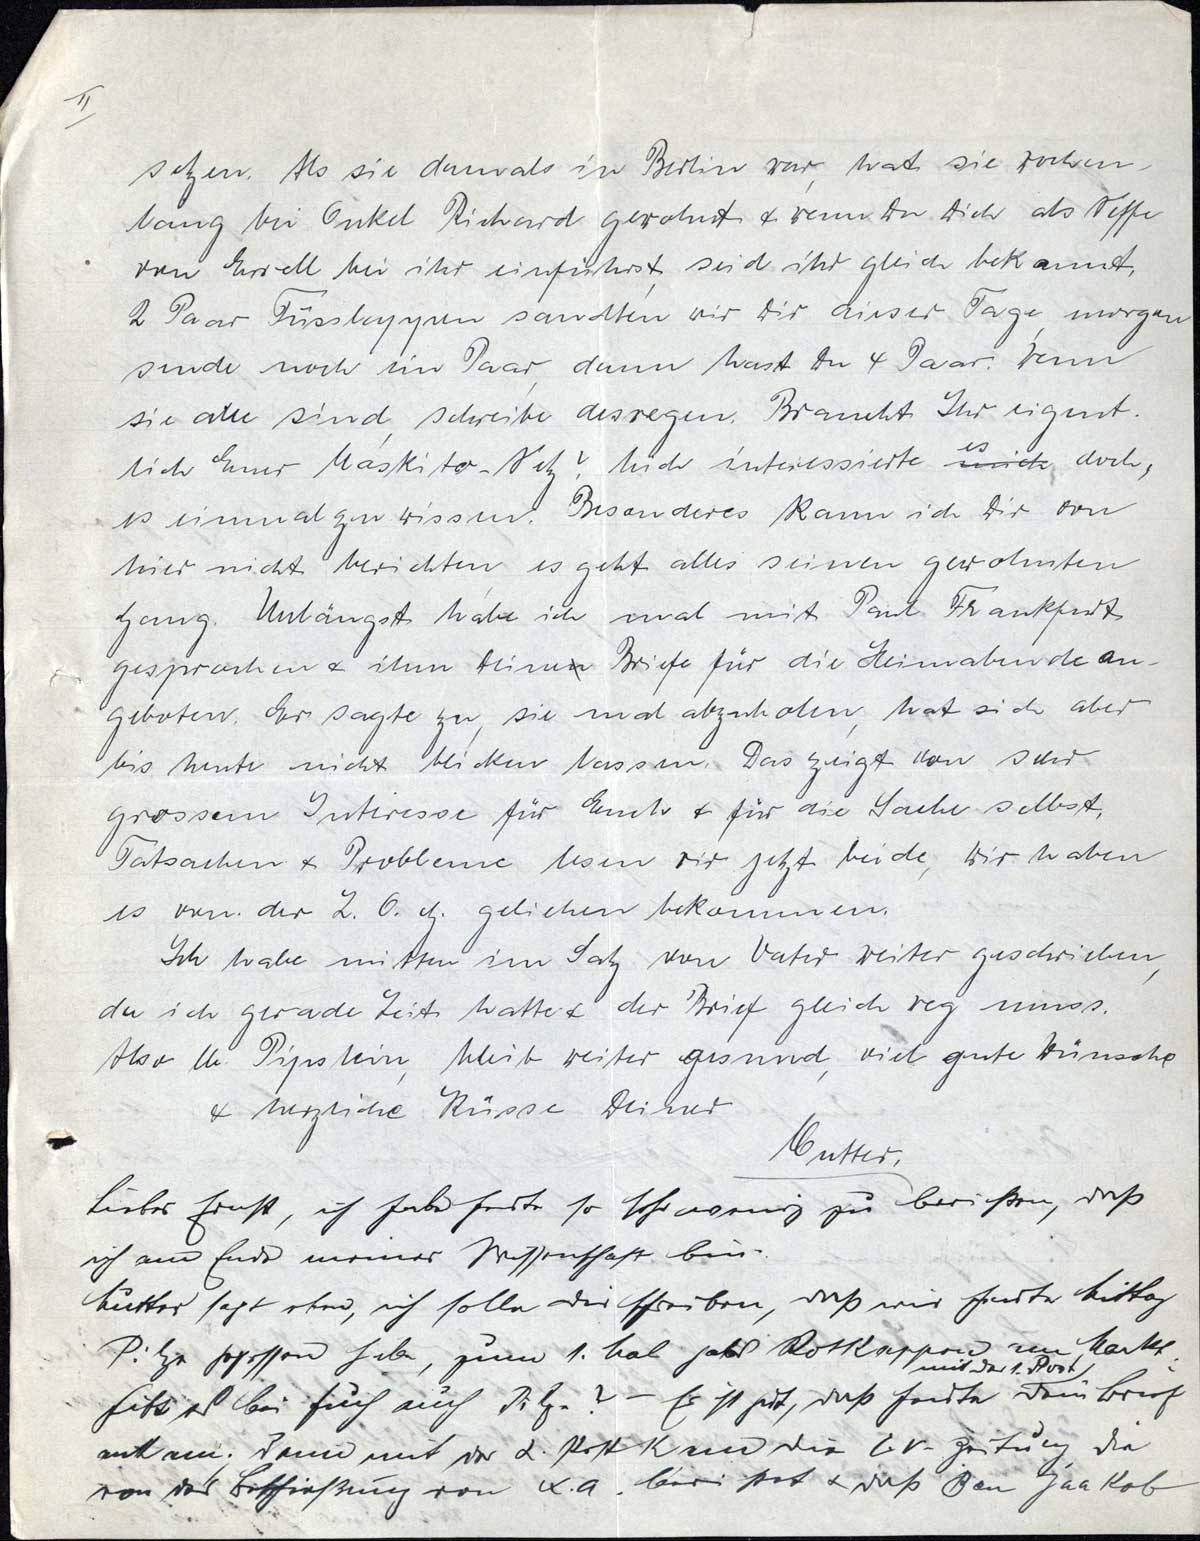 II
setzen. Als sie damals in Berlin war, hat sie wochen-
lang bei Onkel Richard gewohnt & wenn Du Dich als Neffe
von Erich bei ihr einführst, seid ihr gleich bekannt.
2 Paar Füsslappen sandten wir Dir dieser Tage, morgen
sende noch ein Paar, dann hast Du 4 Paar. Wenn
sie alle sind, schreibe deswegen. Braucht Ihr eigent-
lich Euer Moskito-Netz? Mich interessierte es doch,
es einmal zu wissen. Besonderes kann ich Dir von
hier nicht berichten, es geht alles seinen gewohnten
Gang. Unlängst habe ich mal mit Paul Frankfurt
gesprochen & ihm Deine Briefe für die Heimabende an-
geboten. Er sagte zu, sie mal abzuholen, hat sich aber
bis heute nicht blicken lassen. Das zeigt von sehr
grossem Interesse für Euch & für die Sache selbst.
Tatsachen & Probleme lesen wir jetzt beide, wir haben
es von der Z. O. G. geliehen bekommen.
Ich habe mitten im Satz von Vater weiter geschrieben,
da ich gerade Zeit hatte & der Brief gleich weg muss.
Also lb. Pipslein, bleib weiter gesund, viel gute Wünsche
& herzliche Küsse Deiner
Mutter.
Lieber Ernst, ich habe heute so sehr wenig zu berichten, daß
ich am Ende meiner Wissenschaft bin.
Mutter sagt eben, ich solle Dir schreiben, daß wir heute Mittag
Pilze gegessen habe, zum 1. Mal gabs Rotkappen am Markt.
Gibt es bei Euch auch Pilze? – Es ist gut, daß heute mit der 1. Post Dein Brief
ankam. Denn mit der 2. Post kam die C.V.-Zeitung, die
von der Beschießung von K.A. berichtet & daß Ben Jaakob